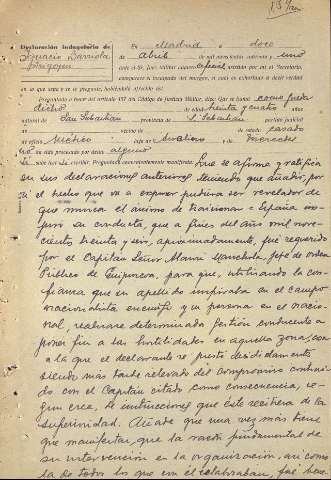 Declaración indagatoria de
Ignacio Barriola
Irigoyen
En Madrid a doce
de abril de mil novecientos cuarenta y uno
ante S. Sª, Juez militar
comparece el encargado del margen, al cual se
en lo que sepa y se le pregunte, habiéndolo ofrecido así.
Preguntado a tenor del artículo 457 del Código de Justicia Militar, dijo: Que se llama como queda
dicho de treinta y cuatro años
natural de San Sebastián provincia de S. Sebastián partido judicial
vecino de de estado casado
Médico hijo de y Mercedes
no ha sido procesado por delito alguno
Preguntado convenientemente manifiesta: Que se afirma y ratifica
en sus declaraciones anteriores teniendo que añadir, por
si el hecho que va a exponer pudiera ser revelador de
que nunca el ánimo de traicionar a España ins-
piró su conducta, que a fines del año mil nove-
cientos treinta y seis, aproximadamente, fué requerido
por el Capitán Señor jefe de orden
Público de Guipúzcoa, para que, utilizando la con-
fianza que su apellido inspiraba en el campo
nacionalista encuentre y su persona en el nacio-
nal, realizare determinada gestión conducente a
poner fin a las hostilidades en aquella zona, con
a la que el declarante se prestó decididamente
siendo más tarde relevado del compromiso contraí-
do con el Capitán citado como consecuencia, se-
gún cree, de instrucciones que éste recibiera de la
Superioridad. Añade que una vez más tiene
que manifestar, que la razón fundamental de
su intervención en la organización, así como
la de todos los que con él colaboraban, fué